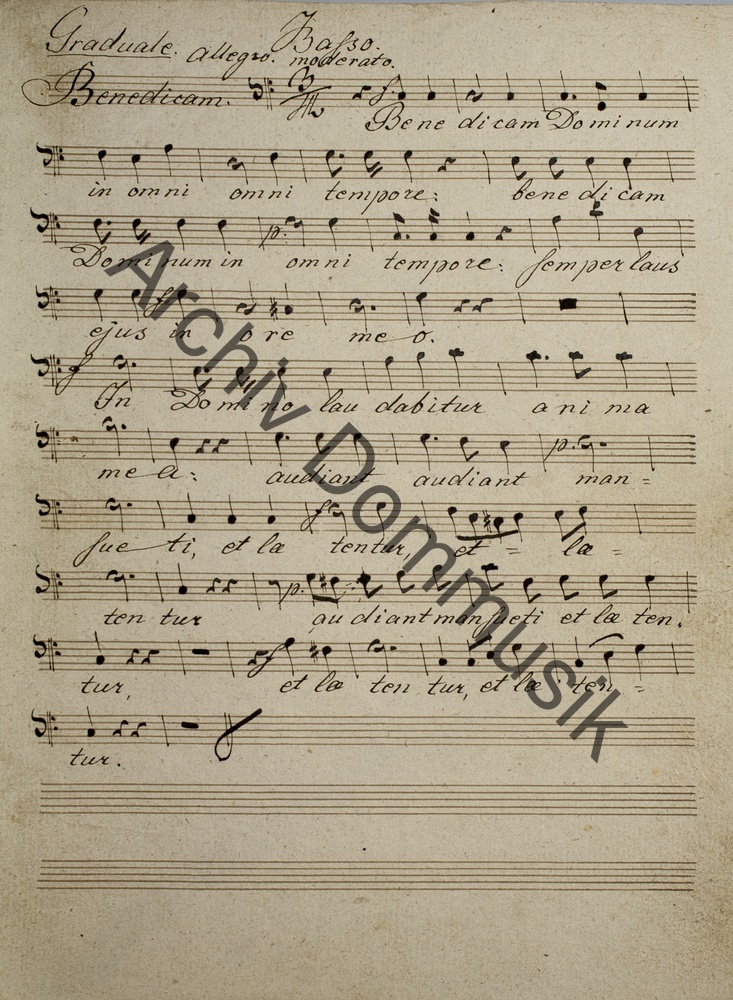 Graduale. Basso.
Allegro. moderato.
Benedicam.
Bene dicam Do mi num
in omni omni tempore: bene di cam
Do mi num in omni tempore: semper laus
ejus in o re me o.
In Do mi no lau dabitur a ni ma
me a: audiant audiant man =
sue ti, et læ tentur, et = læ =
ten tur au diant mansueti et læ ten.
tur, et læ ten tur, et læ ten =
tur.
Archiv Dommusik